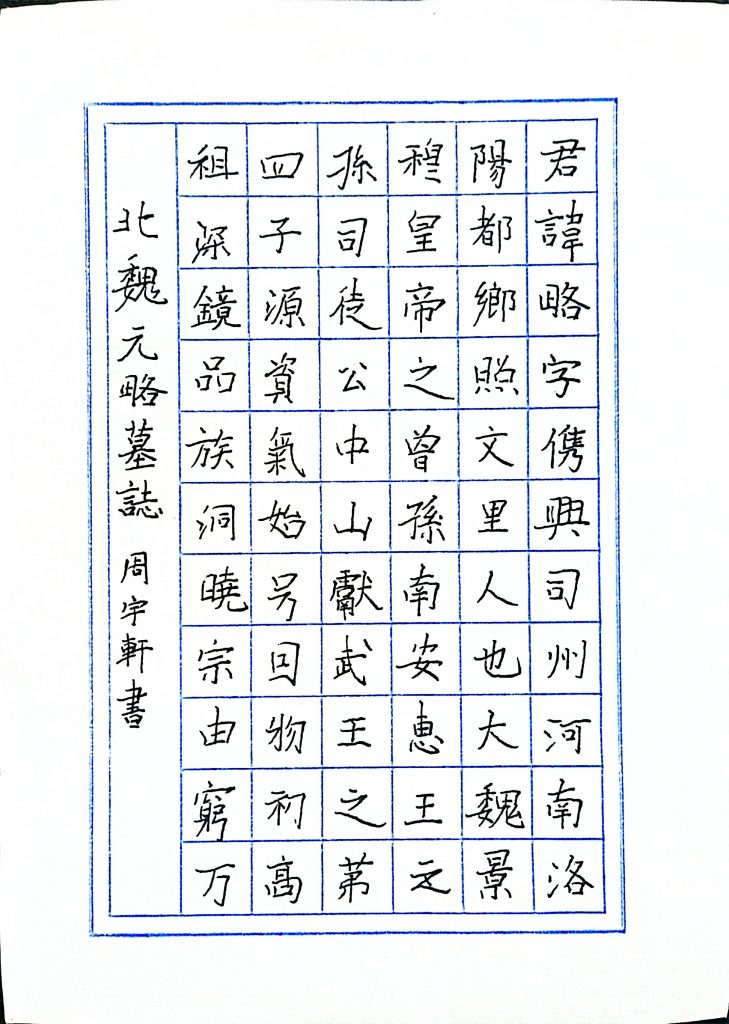 君諱略字儁興司州河南洛
陽都鄉照文里人也大魏景
穆皇帝之曾孫南安惠王之
孫司徒公中山獻武王之苐
四子源資氣始号回物初高
祖深鏡品族洞曉宗由窮万
北魏元略墓誌 周宇軒書